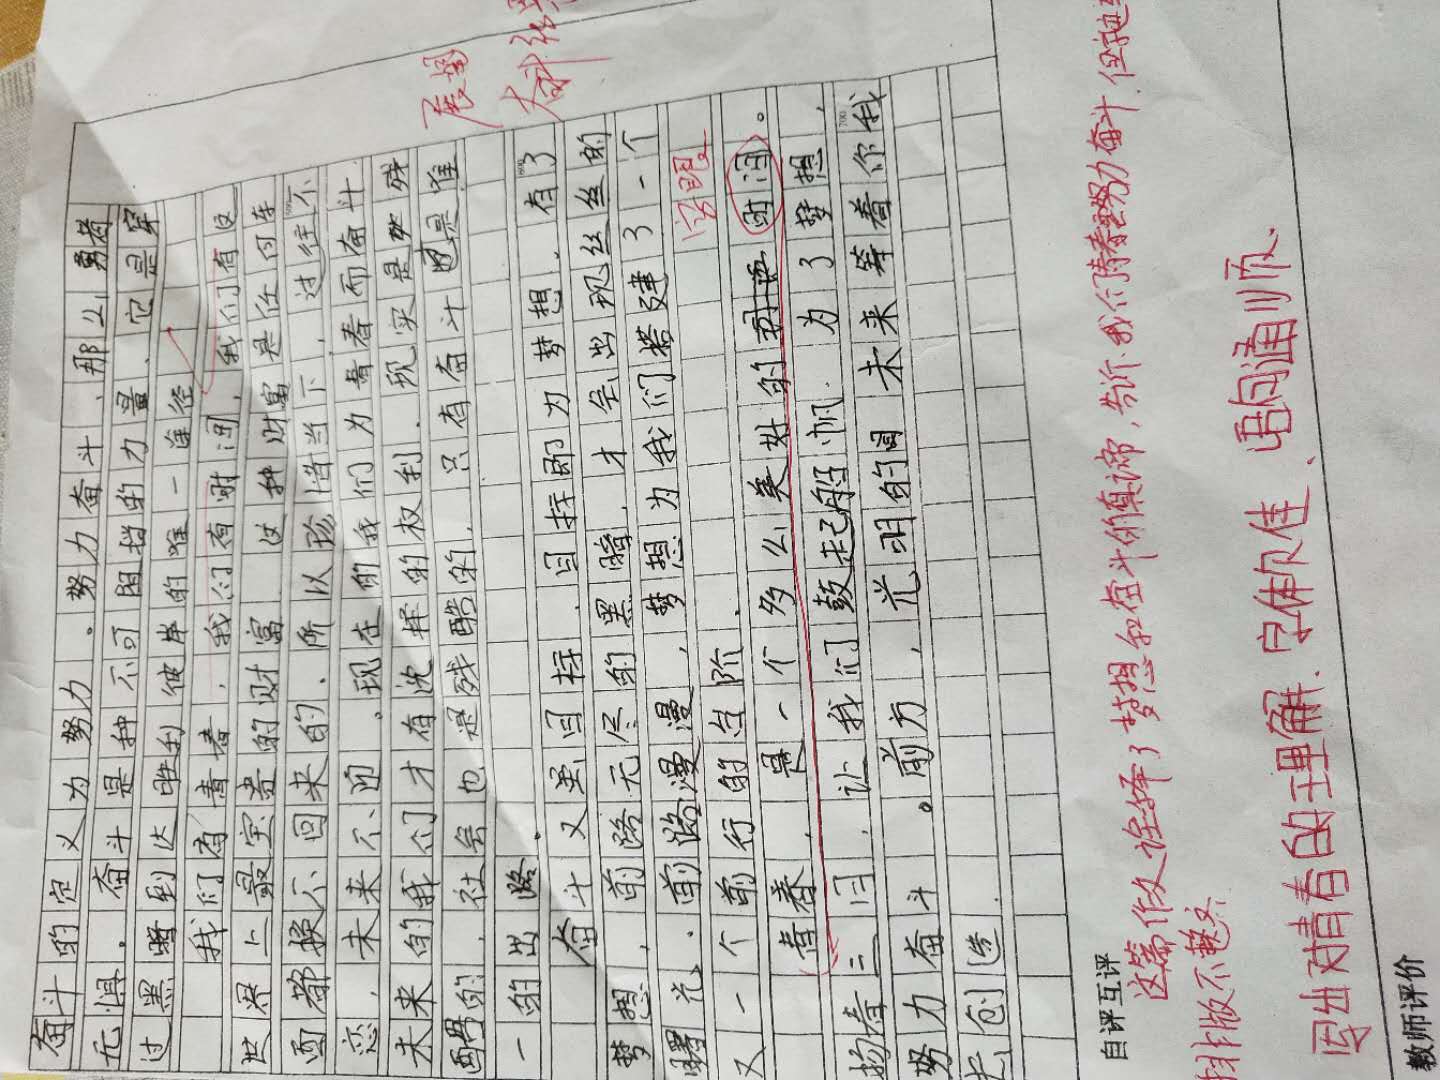 展望
奋斗的定义为努力。努力奋斗、那么勇者
无惧。奋斗是种不可阻挡的力量、它是穿
过黑暗到达胜利彼岸的唯一途径
我们有青春,我们有时间,我们有这
世界上最宝贵的财富.这种财富是任何东
西都换不回来的、所以珍惜当下,过往不
恋,未来不迎。现在的我们为青春而奋斗
未来的我们才有选择的权利.现实是残
酷的,社会也是残酷的,只有奋斗是唯
一的出路.
奋斗又虽目标.目标即为梦想.有了
梦想,前路无尽的黑暗,才会出现丝丝的
曙光、前路漫漫,梦想为我们搭建了一个
又一个前行的台阶.
说明
青春,是一个多么美好的时间。
扬春二日,让我们鼓起船帆.为了梦想,
努力奋斗。前方,光明的未来等着你我
去创造
600
700
自评互评
这篇作文诠释了梦想和奋斗的真谛,告诉我们青春要努力奋斗.但
排版不整齐
写出对青春的理解.字体欠佳、语句通顺、
教师评价